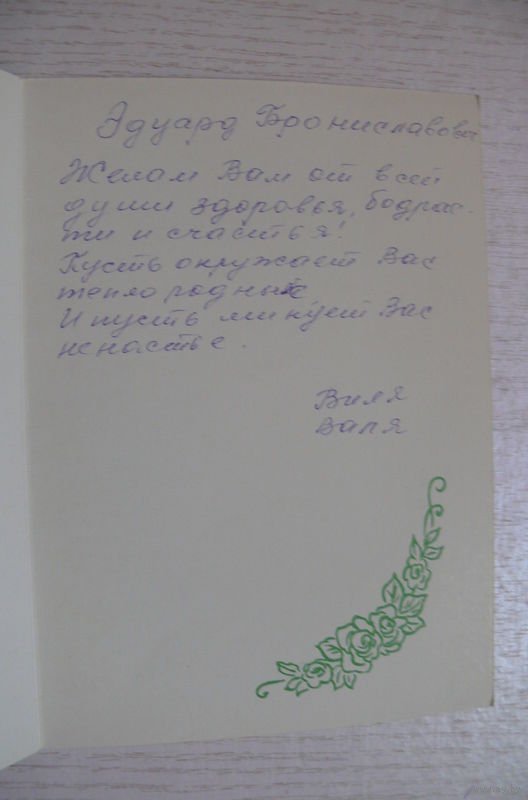 Эдуард Брониславович
Желам Вам от всей
души здоровья, бодрас-
ти и счастья!
Пусть окружает Вас
тепло родных
И пусть минует Вас
ненастье.
Виля
Валя